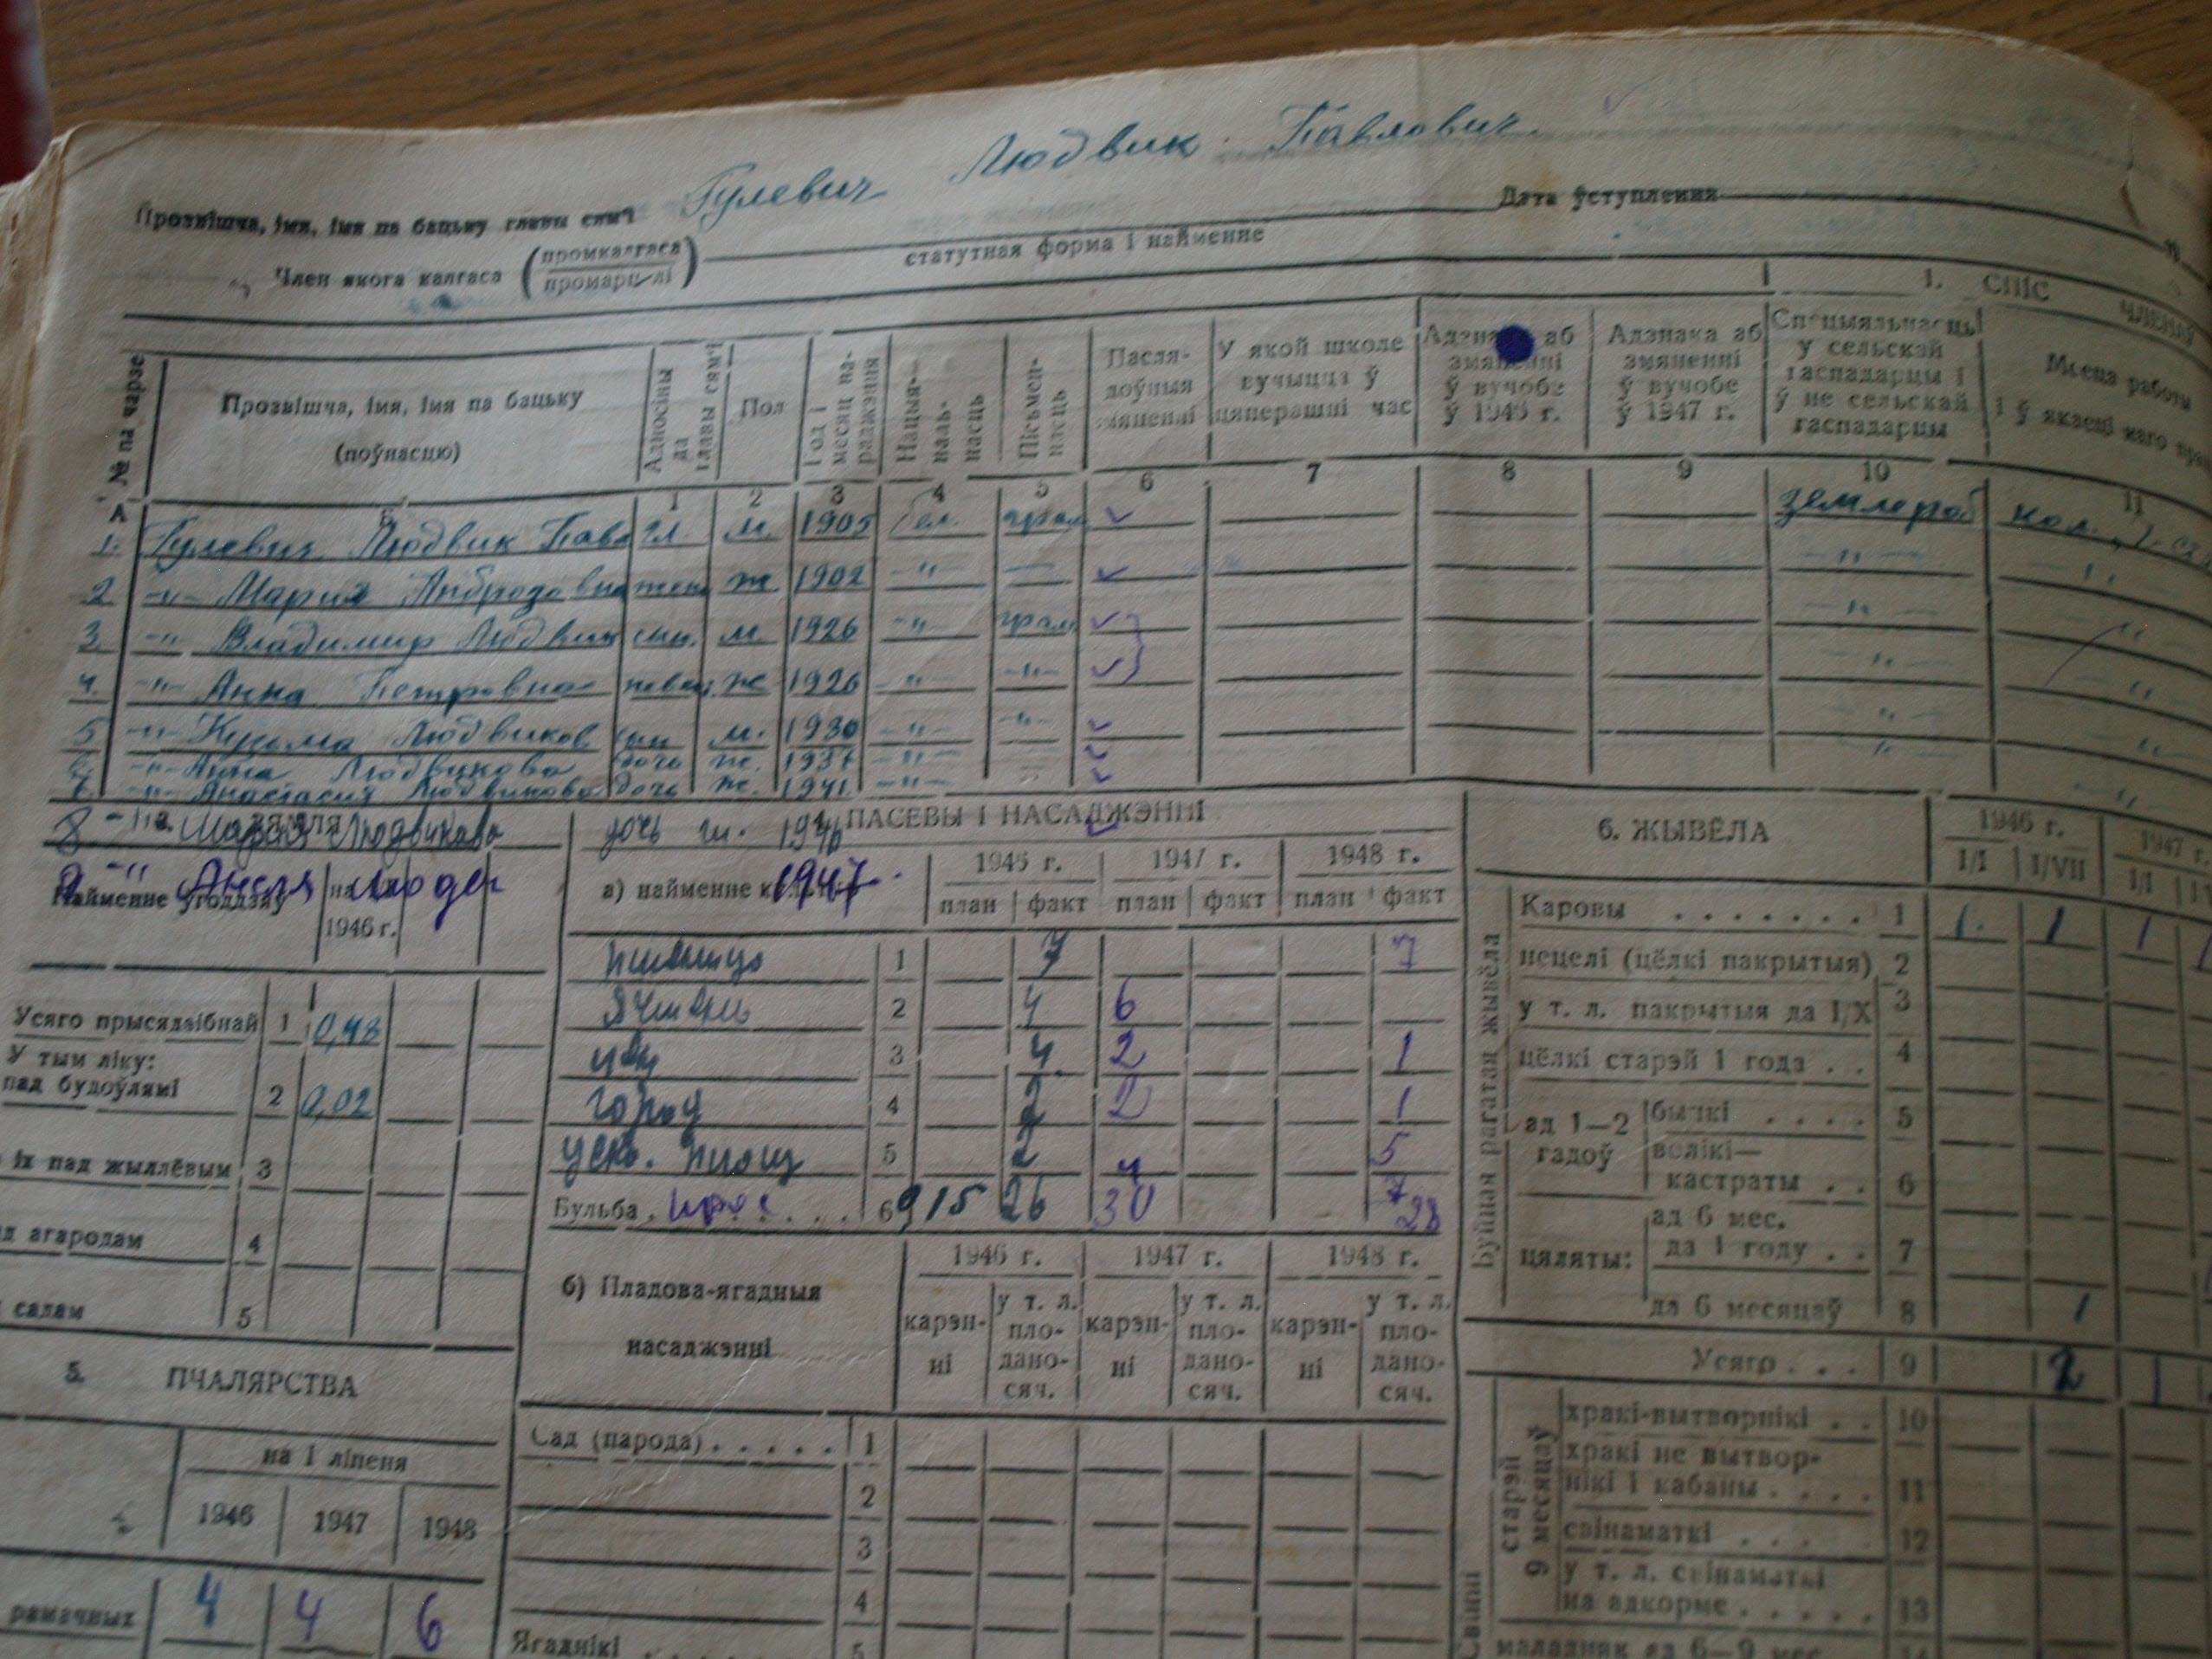 Гулевич Людвик Павлович
Прозвішча, імя, імя па бацьку главы сям'і
Дата ўступлення
Член якога калгаса (промкалгаса промарцелі)
статутная форма і найменне
1. СПІС ЧЛЕНАЎ
№ па чарзе
Прозвішча, імя, імя па бацьку (поўнасцю)
Адносіны да главы сям'і
Пол
Год і месяц нараджэння
Нацыянальнасць
Пісьменнасць
Пасля-
доўныя
змяненні
У якой школе
вучыцца ў
цяперашні час
Адзнака аб
змяненні
ў вучобе
ў 1946 г.
Адзнака аб
змяненні
ў вучобе
ў 1947 г.
Спецыяльнасць
у сельскай
гаспадарцы і
ў не сельскай
гаспадарцы
Месца работы
і ў якасці каго
А Б 1 2 3 4 5 6 7 8 9 10 11
1. Гулевич Людвик Павл гл. м. 1905 бел. грам ✓ землероб кол.
2 -"- Мария Амброзовна жена ж 1902 -"- ✓ -"- "
3. -"- Владимир Людвик сын. м. 1926 -"- грам ✓ -"- "
4. -"- Анна Петровна невес. ж 1926 -"- -"- ✓ -"- "
5 -"- Кузьма Людвиков сын м. 1930 -"- -"- ✓ -"- "
6. -"- Анна Людвикова дочь ж. 1937 -"- ✓ -"- "
7. -"- Анастасия Людвикова дочь ж. 1941 -"- ✓ "
8 -"- Мария Людвикова дочь ж. 1946 ✓
9 -"- Анеля Людви 1947
4. ПАСЕВЫ І НАСАДЖЭННІ
6. ЖЫВЁЛА
1946 г. 1947 г.
I/I I/VII I/I
Найменне угоддзяў
на
1946 г.
а) найменне культур
1946 г. 1947 г. 1948 г.
план факт план факт план факт
Усяго прысядзібнай 1 0,48
У тым ліку:
пад будоўлямі 2 0,02
іх пад жыллёвым 3
агародам 4
садам 5
пшеница 1 7 7
Ячмень 2 4 6
3 4 2 1
город 4 2 2 1
5 2 4 5
Бульба. 6 915 26 30 28
Буйная рагатая жывёла
Каровы . . . . . . . 1 1. 1 1
нецелі (цёлкі пакрытыя) 2
у т. л. пакрытыя да I/X 3
цёлкі старэй 1 года . . 4
ад 1—2 гадоў
бычкі . . . . 5
волікі—
кастраты . . 6
цяляты:
ад 6 мес.
да 1 году . . 7
да 6 месяцаў 8 1
Усяго . . . 9 2 1
б) Пладова-ягадныя
насаджэнні
1946 г. 1947 г. 1948 г.
карэн-
ні
у т. л.
пло-
дано-
сяч.
карэн-
ні
у т. л.
пло-
дано-
сяч.
карэн-
ні
у т. л.
пло-
дано-
сяч.
Сад (парода) . . . . . 1
2
3
4
Ягаднікі 5
5. ПЧАЛЯРСТВА
на I ліпеня
1946 1947 1948
рамачных 4 4 6
Свінні
старэй
9 месяцаў
хракі-вытворнікі . . 10
хракі не вытвор-
нікі і кабаны . . . . 11
свінаматкі . . . . 12
у т. л. свінаматкі
на адкорме . . . . . 13
маладняк ад 6—9 мес. 14